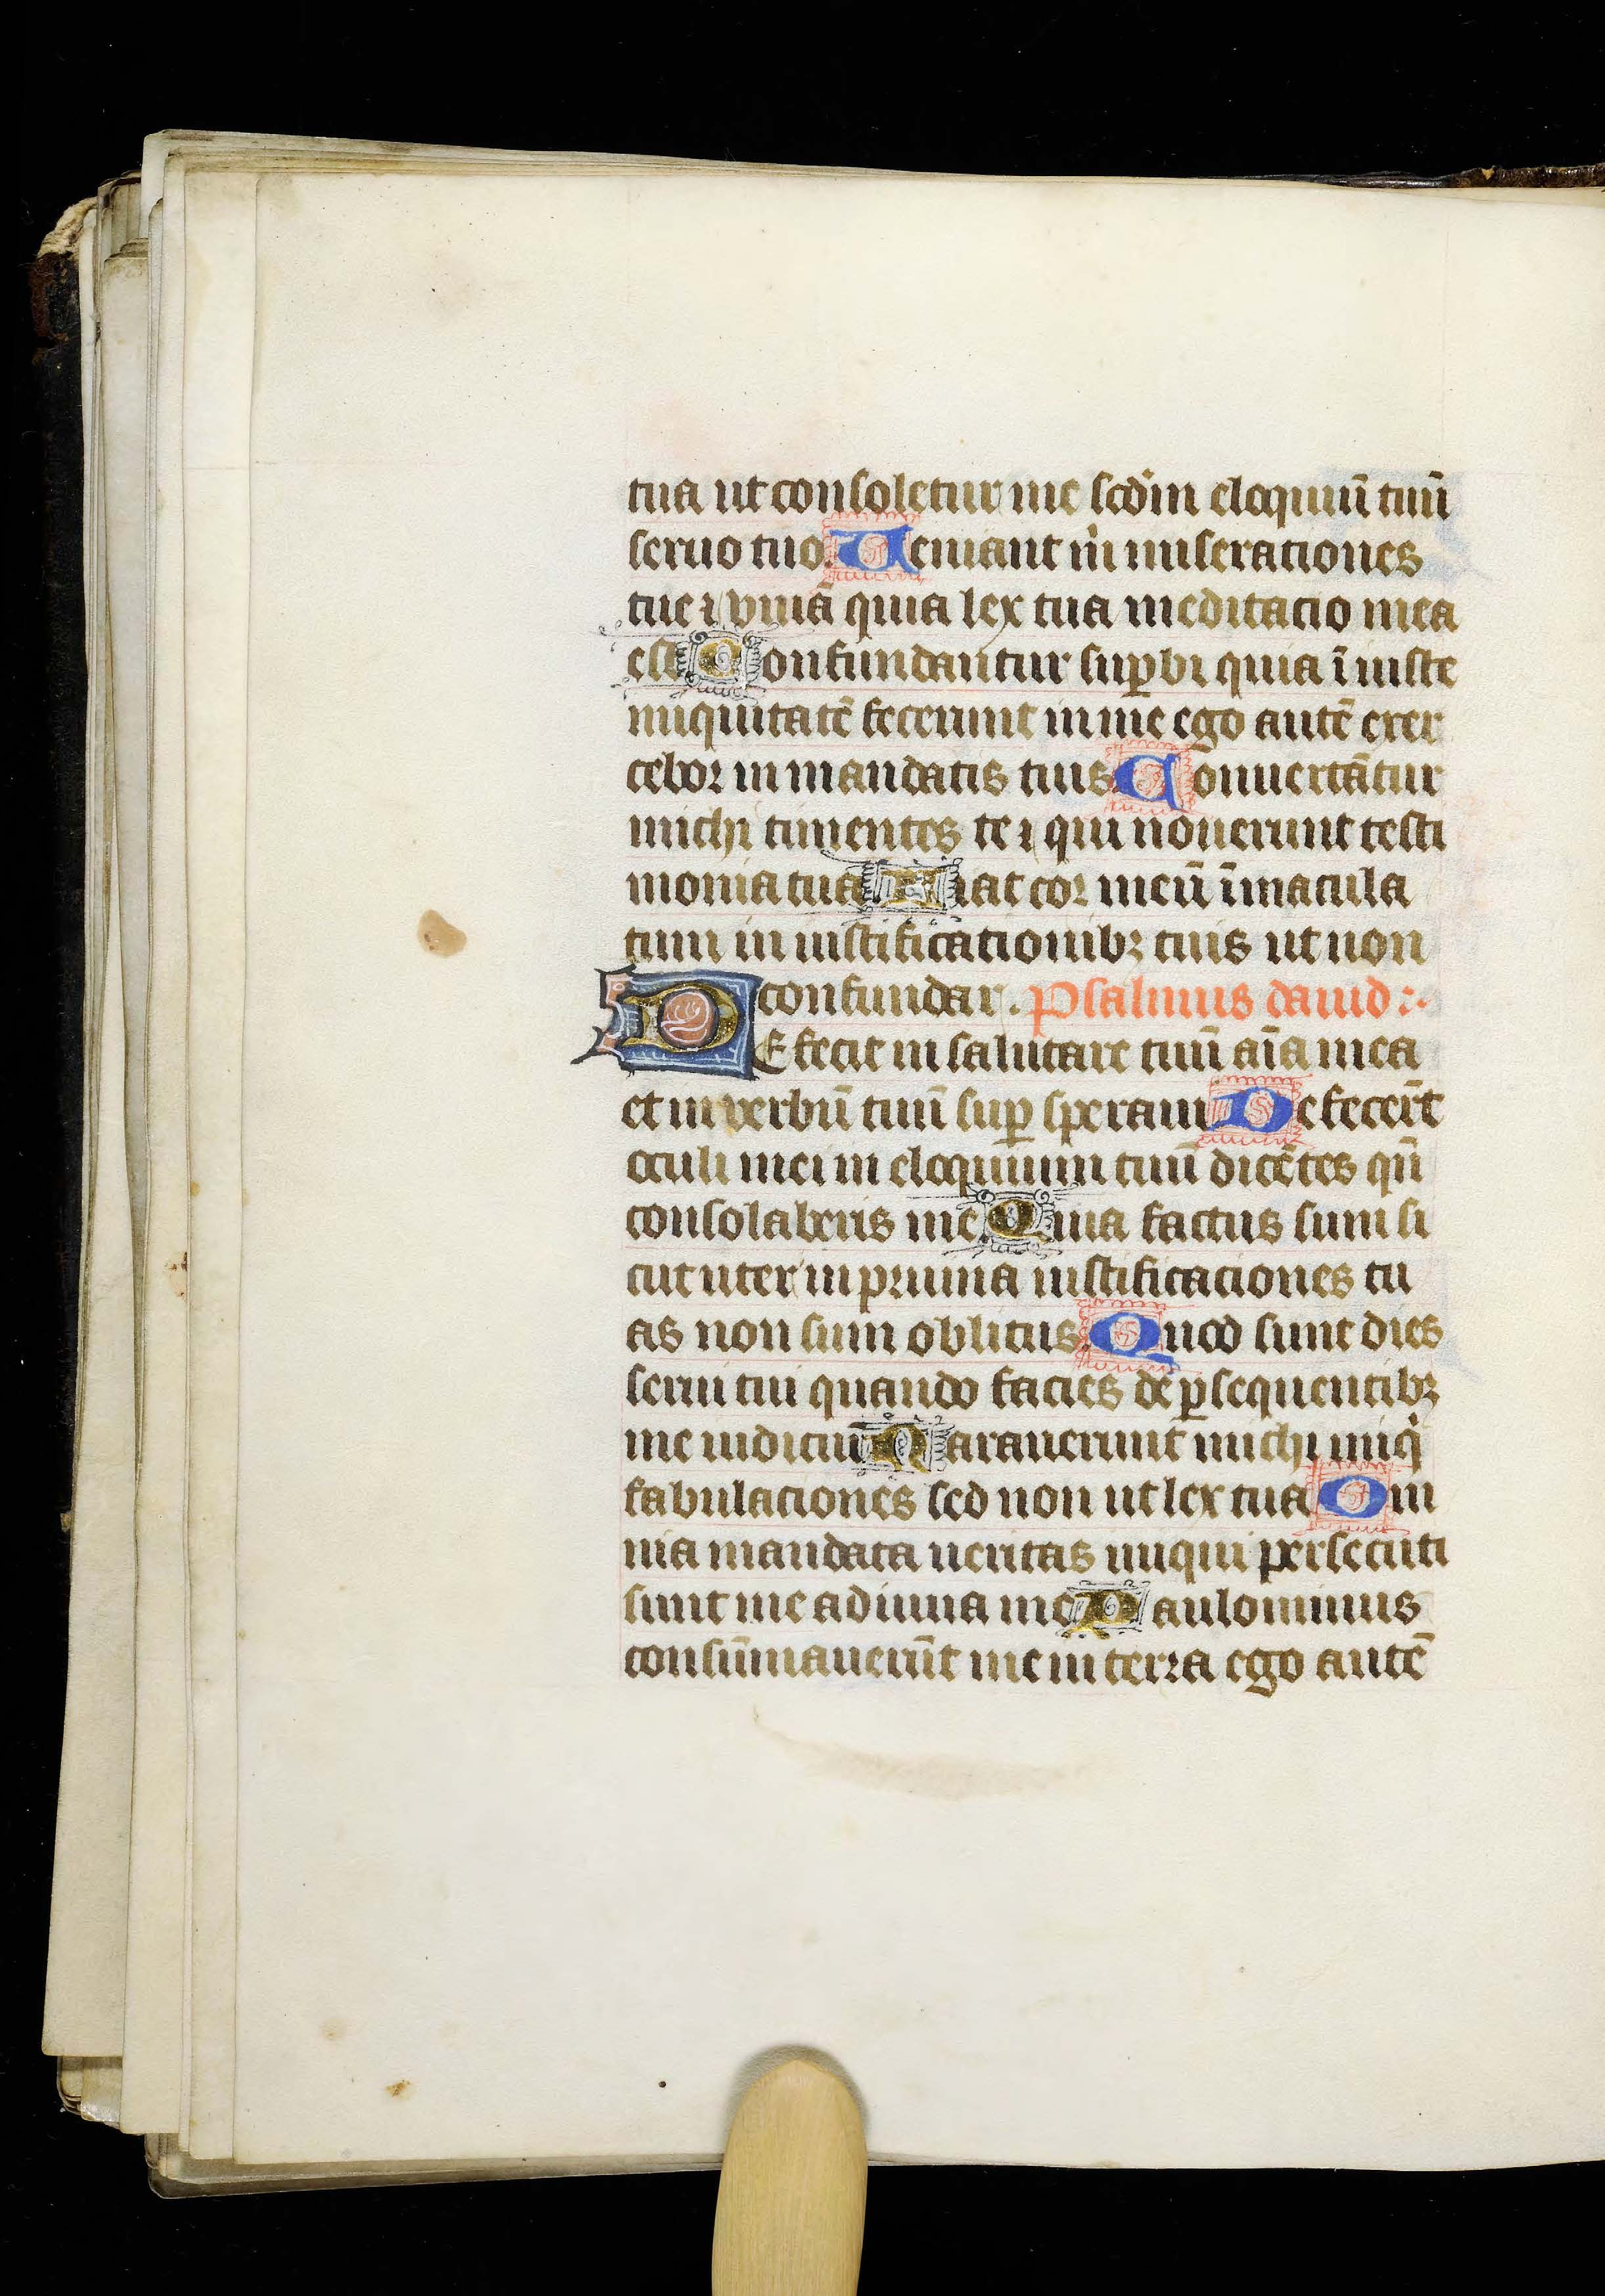 tua ut consoletur me scdm eloquiū tuū
seruo tuo. Ueniant m̄ miserationes
tue ⁊ viuā quia lex tua meditacio mea
est. Confundantur sup̱bi quia īiuste
iniquitatē fecerunt in me ego autē exer
cebor in mandatis tuis. Conuertātur
michi timentes te ⁊ qui nouerunt testi
monia tua. Fiat cor meū īmacula
tum in iustificationibꝫ tuis ut non
confundar. Psalmus dauid:·
DEfecit in salutare tuū aīa mea
et in verbū tuū sup̱ speraui. Defecerūt
oculi mei in eloquium tuū dicētes qn̄
consolaberis me. Quia factus sum si
cut uter in pruina iustificaciones tu
as non sum oblitus. Quod sunt dies
serui tui quando facies de p̱sequentibꝫ
me iudiciū. Narauerunt michi iniqⁱ
fabulaciones sed non ut lex tua. Om
nia mandata ueritas iniqui persecuti
sunt me adiuua me. Paulominus
consūmauerūt me in terra ego autē